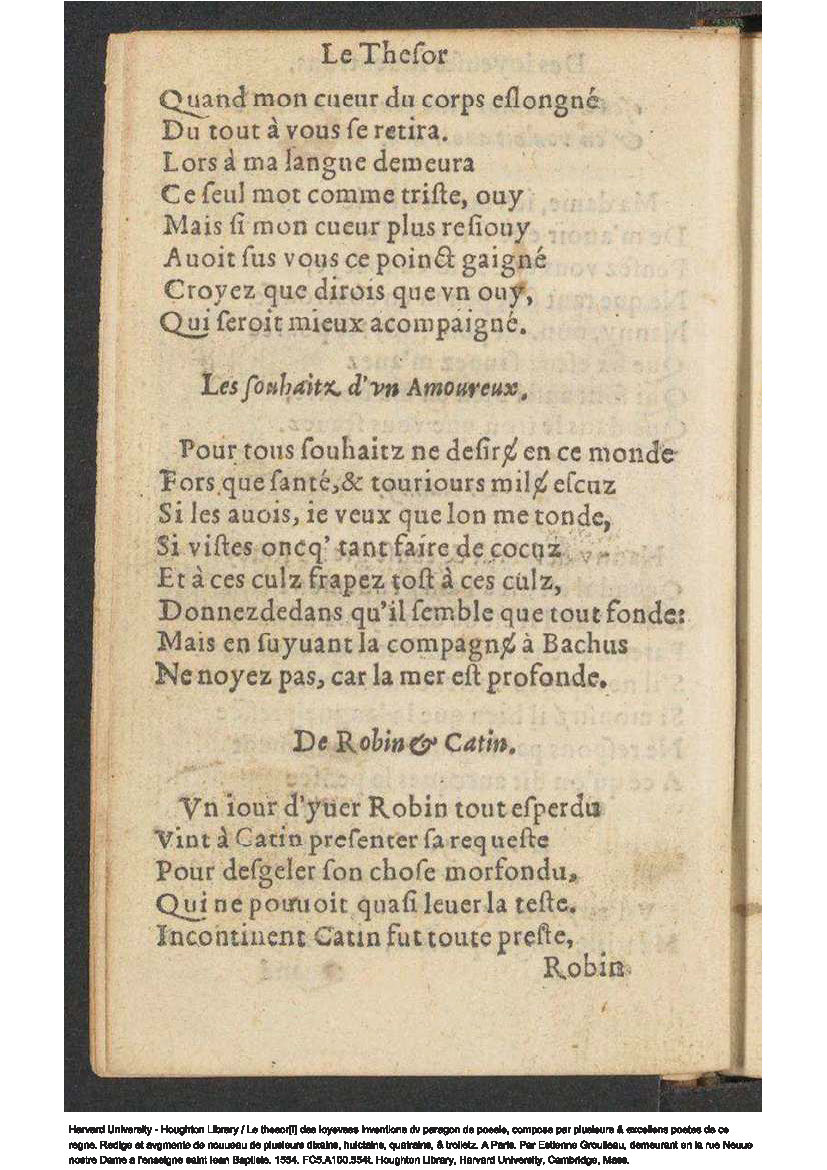 Le Theſor
Quand mon cueur du corps eſlongné
Du tout à vous ſe retira.
Lors à ma langue demeura
Ce ſeul mot comme triſte, ouy
Mais ſi mon cueur plus reſiouy
Auoit ſus vous ce poinct gaigné
Croyez que dirois que vn ouy,
Qui ſeroit mieux acompaigné.
Les ſouhaitz d'vn Amoureux.
Pour tous ſouhaitz ne deſirɇ en ce monde
Fors que ſanté, & touriours milɇ eſcuz
Si les auois, ie veux que lon me tonde,
Si viſtes oncq' tant faire de cocuz
Et à ces culz frapez toſt à ces culz,
Donnezdedans qu'il ſemble que tout fonde:
Mais en ſuyuant la compagnɇ à Bachus
Ne noyez pas, car la mer eſt profonde.
De Robin & Catin.
Vn iour d'yuer Robin tout eſperdu
Vint à Catin preſenter ſa requeſte
Pour deſgeler ſon choſe morfondu,
Qui ne pouuoit quaſi leuer la teſte.
Incontinent Catin fut toute preſte,
Robin
Harvard University - Houghton Library / Le thesor[!] des ioyevses inventions dv paragon de poesie, compose par plusieurs & excellens poetes de ce
regne. Redige et avgmente de nouueau de plusieurs dixains, huictains, quatrains, & triolletz. A Paris. Par Estienne Groulleau, demeurant en la rue Neuue
nostre Dame a l'enseigne saint Iean Baptiste. 1554. FC5.A100.554t. Houghton Library, Harvard University, Cambridge, Mass.